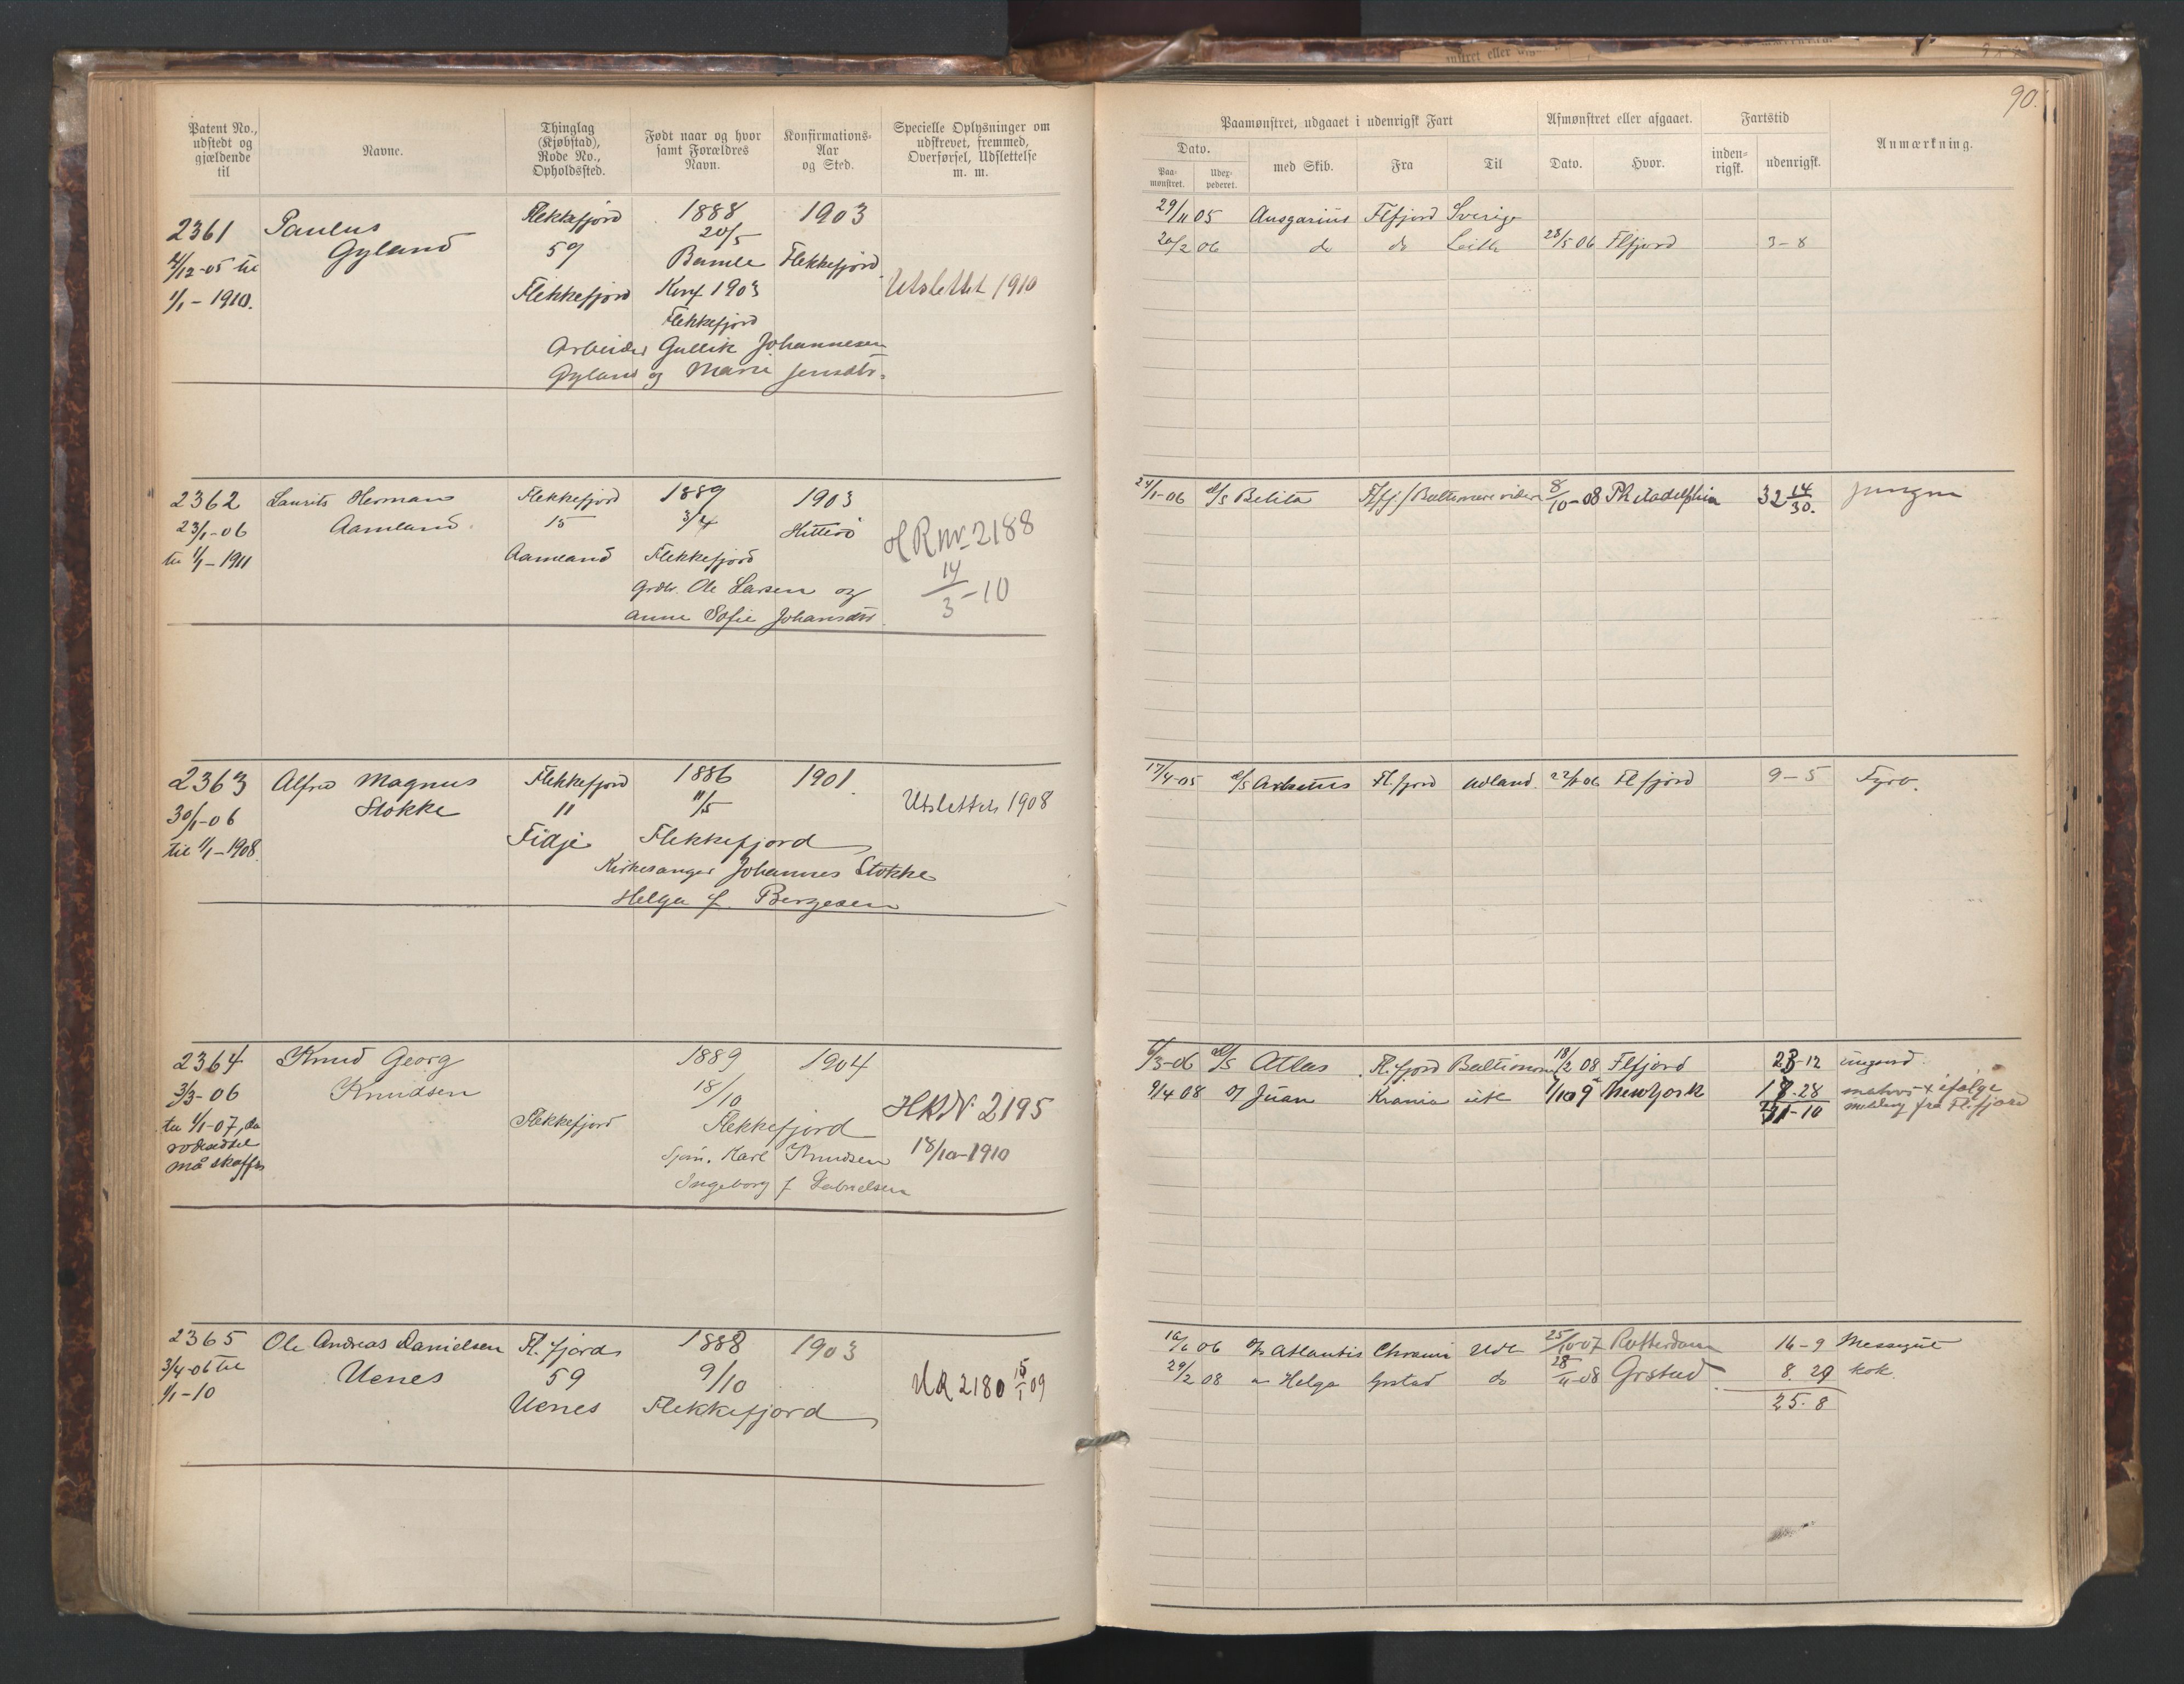 90.
Patent No., udstedt og gjældende til
Navne.
Thinglag (Kjøbstad), Rode No., Opholdssted.
Født naar og hvor samt Forældres Navn.
Konfirmations-Aar og Sted.
Specielle Oplysninger om udskrevet, fremmed, Overførsel, Udslettelse m. m.
Paamønstret, udgaaet i udenrigsk Fart
Dato.
Paa-mønstret.
Udex-pederet.
med Skib.
Fra
Til
Afmønstret eller afgaaet.
Dato.
Hvor.
Fartstid
inden-rigsk.
udenrigsk.
Anmærkning.
2361 Paulus Flekkefjord 1888 1903
4/12-05 til Gyland 59 20/5
1/1 - 1910. Flekkefjord Bamle Flekkefjord.
Konf 1903
Flekkefjord
Utslettet 1910
Arbeider Gullik Johannesen
Gyland og Marie Jensdtr.
29/11 05 Ansgarius Flfjord Sverige
20/2 06 do do Leith 28/5 06 Flfjord 3-8
2362 Laurits Herman Flekkefjord 1889 1903
23/1-06 Aamland. 15 3/4 Hitterö
til 1/1-1911 Aamland Flekkefjord
Grdbr. Ole Larsen og
Anne Sofie Johansdtr.
HR nr. 2188
14/3-10
24/1-06 d/s Belita Flfj. Baltimore videre 8/10-08 Philadelphia 32 14/30. jungm
2363 Alfred Magnus Flekkefjord 1886 1901.
30/1-06 Stokke 11 11/5
til 1/1-1908. Fidje Flekkefjord
Kirkesanger Johannes Stokke
Helga f. Bergesen
Utslettet 1908
17/4-05 d/s Flfjord Udland. 22/1 06 Flfjord 9-5 Fyrb.
2364 Knud Georg 1889 1904
3/3-06 Knudsen 18/10
til 1/1-07, da Flekkefjord Flekkefjord
må skaffes
Sjøm. Karl Knudsen
Ingeborg f Gabrielsen
HR N. 2195
18/10-1910
6/3-06 d/s Atlas Fl.fjord Baltimore 18/2 08 Flfjord 23-12 ungmd.
9/4 08 Juan Krania utl 7/10 9 New York 17.28 matros ifølge
31-10 melding fra Fl.fjord
2365 Ole Andreas Danielsen Fl.fjords 1888 1903
3/4-06 til Uenes 59 9/10
1/1-10 Uenes Flekkefjord
UR 2180 15/1 09
16/6 06 d/s Atlantis Chrania Udl 25/10-07 Rotterdam 16-9 Messegut
29/2 08 Helga Grstad do 28/11-08 Grstad 8.29 kok.
25.8